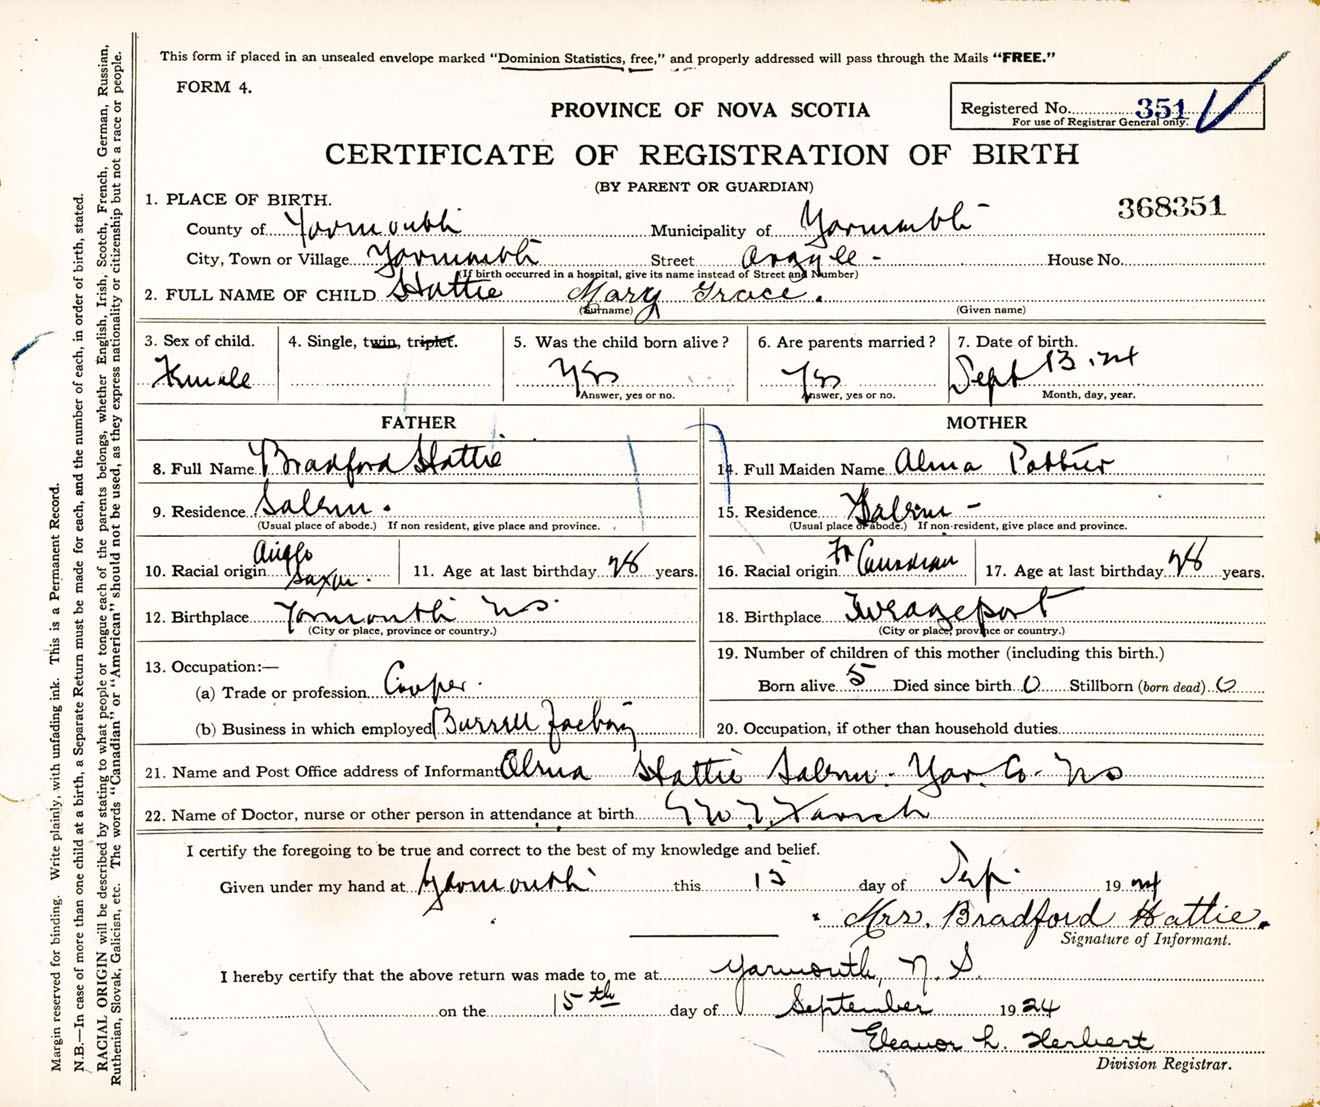 This form if placed in an unsealed envelope marked "Dominion Statistics, free," and properly addressed will pass through the Mails "FREE."
FORM 4.
PROVINCE OF NOVA SCOTIA
Registered No. 351
For use of Registrar General only.
CERTIFICATE OF REGISTRATION OF BIRTH
(BY PARENT OR GUARDIAN)
368351
1. PLACE OF BIRTH.
County of Yarmouth Municipality of Yarmouth
City, Town or Village Yarmouth Street Argyle - House No.
(If birth occurred in a hospital, give its name instead of Street and Number)
2. FULL NAME OF CHILD Hattie Mary Grace.
(Surname) (Given name)
3. Sex of child. 4. Single, twin, triplet. 5. Was the child born alive? 6. Are parents married? 7. Date of birth.
Female Yes Yes Sept 13. 24
Answer, yes or no. Answer, yes or no. Month, day, year.
FATHER MOTHER
8. Full Name Bradford Hattie 14. Full Maiden Name Alma Pottier
9. Residence Salem. 15. Residence Salem -
(Usual place of abode.) If non resident, give place and province. (Usual place of abode.) If non-resident, give place and province.
10. Racial origin Anglo Saxon. 11. Age at last birthday 28 years. 16. Racial origin Fr Canadian 17. Age at last birthday 28 years.
12. Birthplace Yarmouth NS. 18. Birthplace
(City or place, province or country.) (City or place, province or country.)
13. Occupation:— 19. Number of children of this mother (including this birth.)
(a) Trade or profession Cooper. Born alive 5 Died since birth 0 Stillborn (born dead) 0
(b) Business in which employed Barrell Factory 20. Occupation, if other than household duties
21. Name and Post Office address of Informant Alma Hattie Salem. Yar. Co. NS
22. Name of Doctor, nurse or other person in attendance at birth Farish
I certify the foregoing to be true and correct to the best of my knowledge and belief.
Given under my hand at Yarmouth this 15 day of Sep. 1924
Mrs. Bradford Hattie.
Signature of Informant.
I hereby certify that the above return was made to me at Yarmouth, N. S.
on the 15th day of September 1924
Eleanor L. Herbert
Division Registrar.
Margin reserved for binding. Write plainly, with unfading ink. This is a Permanent Record.
N.B.—In case of more than one child at a birth, a Separate Return must be made for each, and the number of each, in order of birth, stated.
RACIAL ORIGIN will be described by stating to what people or tongue each of the parents belongs, whether English, Irish, Scotch, French, German, Russian,
Ruthenian, Slovak, Galician, etc. The words "Canadian" or "American" should not be used, as they express nationality or citizenship but not a race or people.